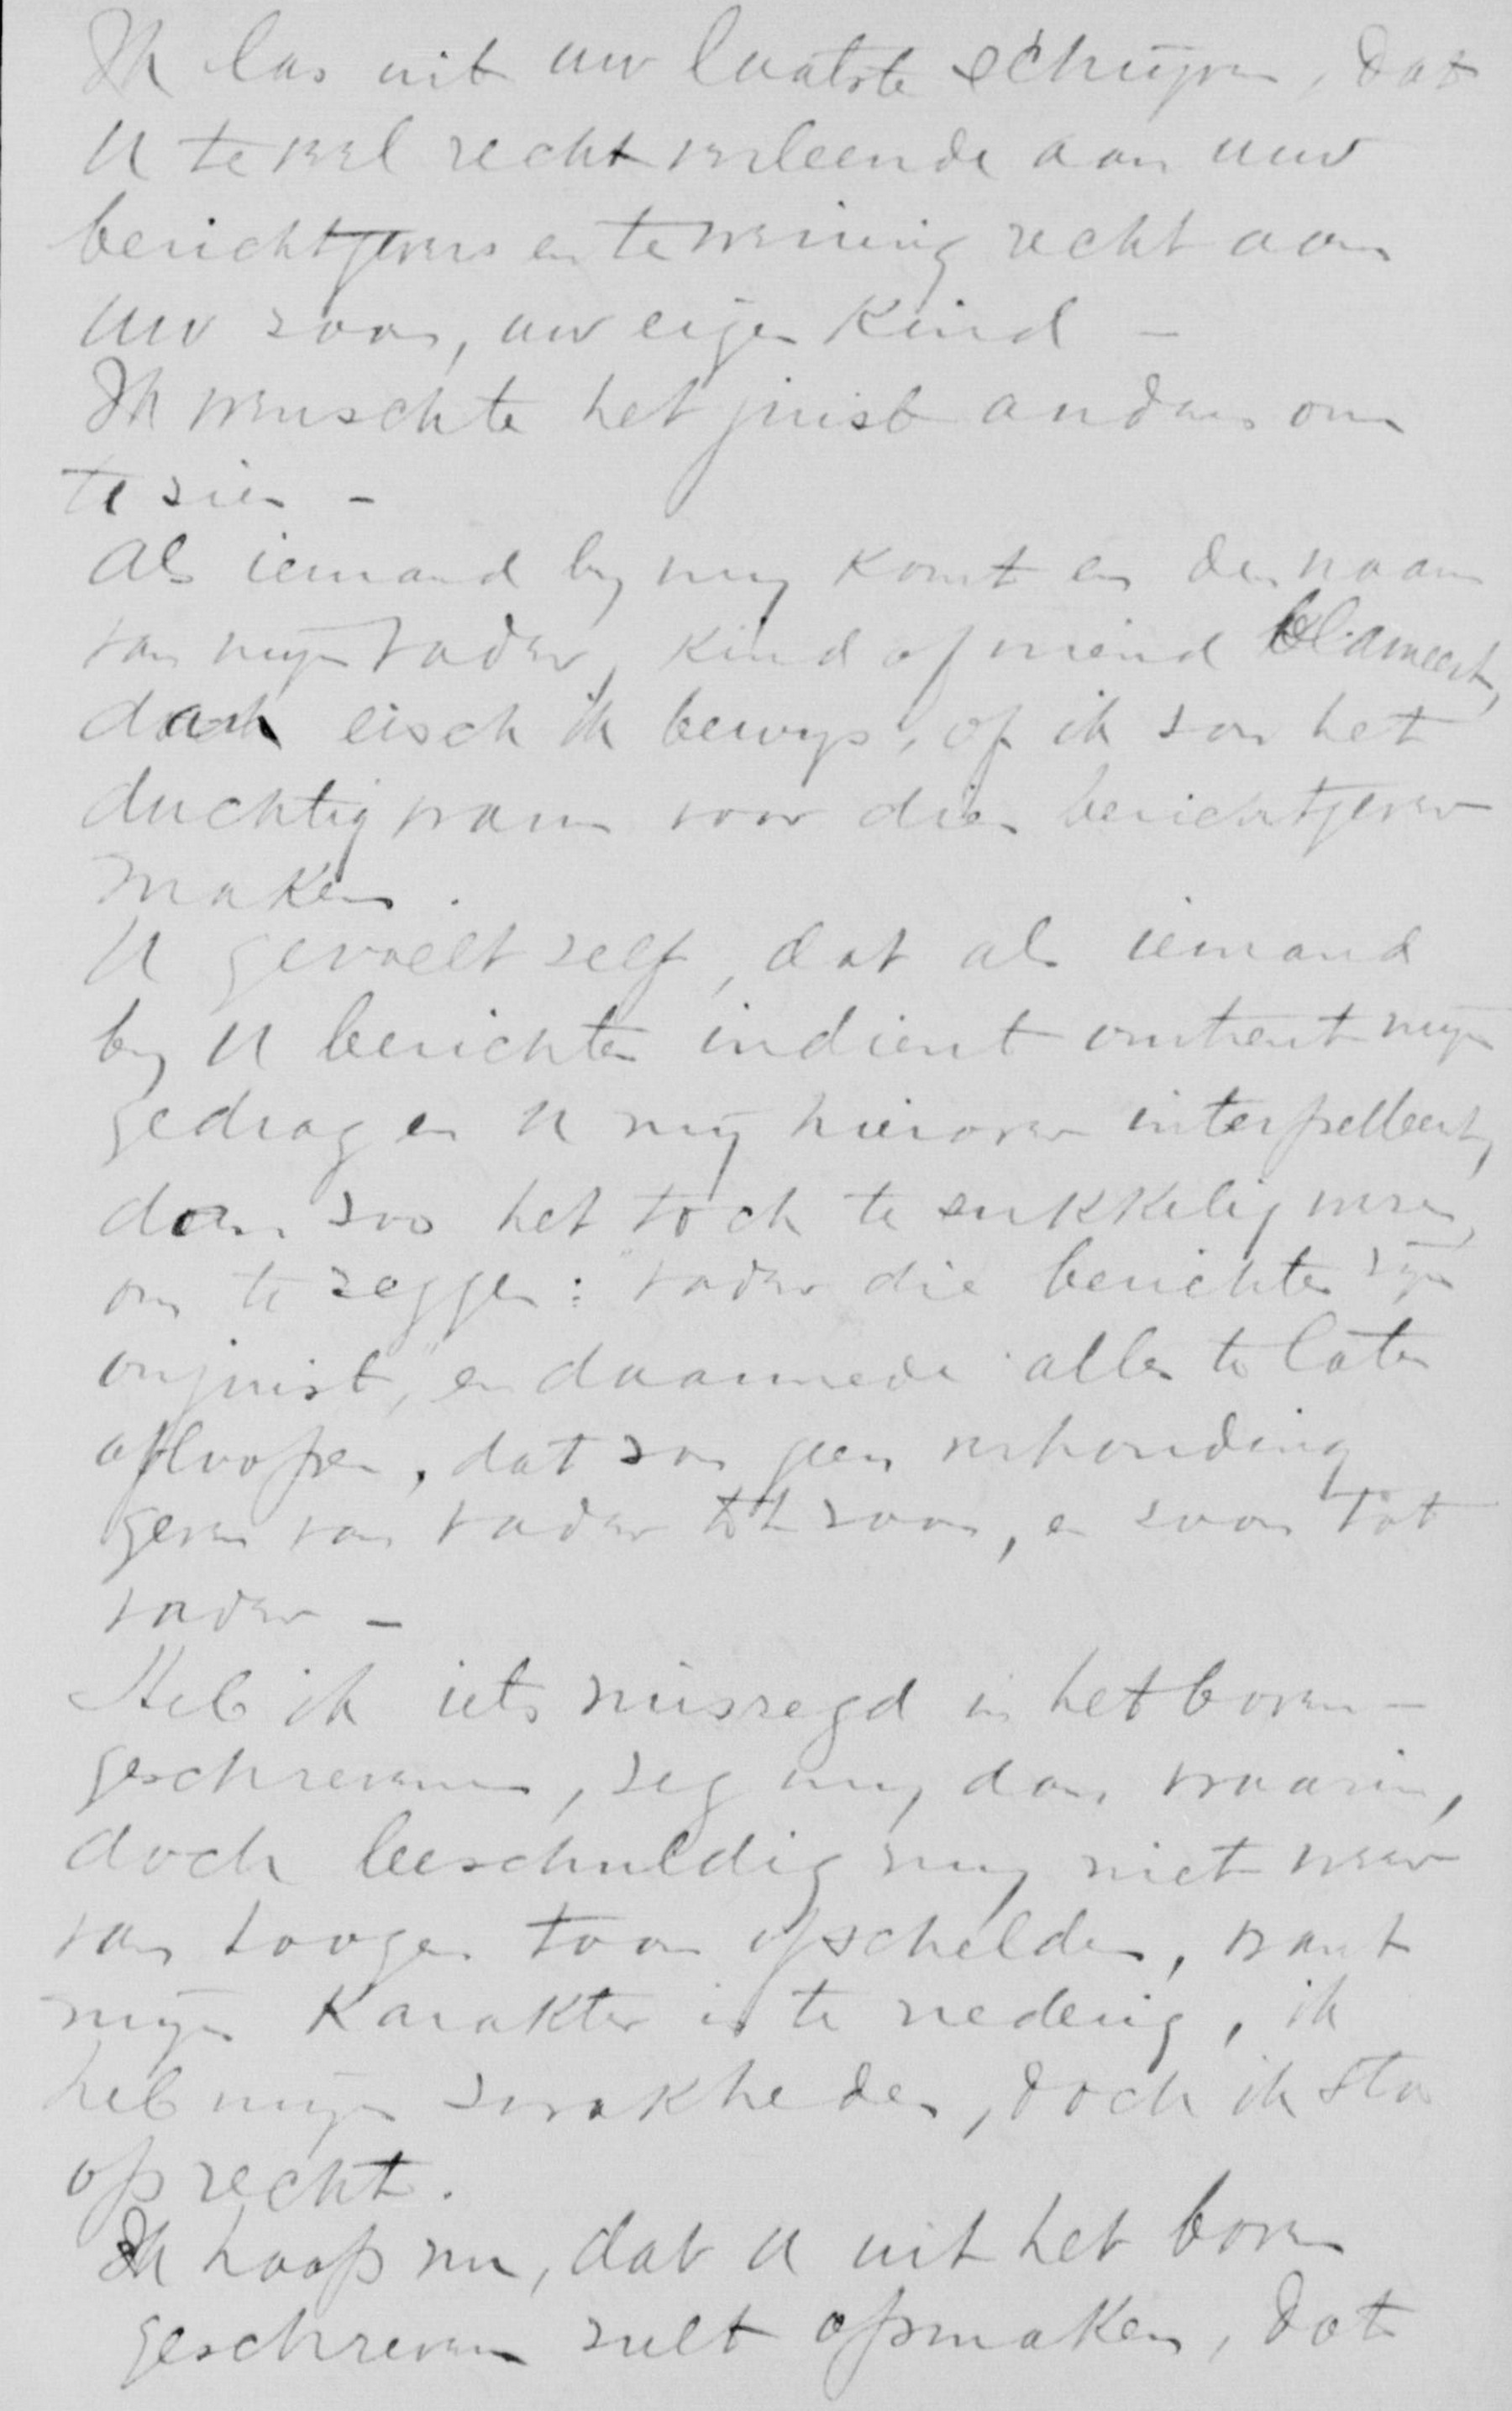 Ik las uit uw laatste schrijven, dat
U te veel recht verleende aan uw
berichtgevers en te weinig recht aan
uw zoon, uw eigen kind –
Ik wenschte het juist andersom
te zien –
Als iemand bij mij komt en den naam
van mijn vader, kind of vriend blameert,
dan eisch ik bewijs, of ik zou het
duchtig warm voor dien berichtgever
maken.
U gevoelt zelf, dat als iemand
bij U berichten indient omtrent mijn
gedrag en U mij hierover interpelleert,
dan zou het toch te sukkelig wezen,
om te zeggen: "vader die berichten zijn
onjuist," en daarmede alles te laten
afloopen, dat zou geen verhouding
geven van vader tot zoon, en zoon tot
vader –
Heb ik iets miszegd in het boven-
geschrevene, zeg mij dan waarin,
doch beschuldig mij niet weer
van hoogen toon of schelden, want
mijn karakter is te nederig, ik
heb mijn zwakheden, doch ik sta
oprecht.
Ik hoop nu, dat U uit het boven
geschrevene zult opmaken, dat